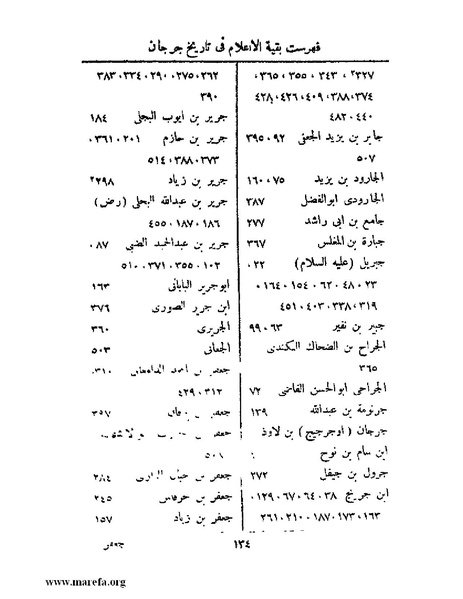 فهرست بقية الاعلام فى تاريخ جرجان
٣٢٧، ٣٤٣، ٣٥٥، ٣٦٥،
٣٧٤، ٣٨٨، ٤٠٩، ٤٢٦، ٤٢٨
٤٤٠، ٤٨٢
جابر بن يزيد الجعفى ٩٢، ٣٩٥
٥٠٧
الجارود بن يزيد ٧٥، ١٦٠
الجارودى ابوالفضل ٣٨٧
جامع بن ابى راشد ٢٧٧
جبارة بن المغلس ٣٦٧
جبريل (عليه السلام) ٢٢،
٢٣، ٤٨، ٦٢، ١٥٤، ١٦٤،
٣١٩، ٣٣٨، ٤٠٣، ٤٥١
جبير بن نفير ٦٣، ٩٩
الجراح بن الضحاك الكندى
٣٦٥
الجراحى ابوالحسن القاضى ٧٢
جرثومة بن عبدالله ١٣٩
جرجان (اوجرجيج) بن لاوذ
ابن سام بن نوح
جرول بن جيفل ٢٧٢
ابن جريج ٣٨، ٦٤، ٦٧، ١٢٩،
١٦٣، ١٧٣، ١٨٧، ٢١٠، ٢٦١
٢٦٢، ٢٧٥، ٢٩٠، ٣٣٤، ٣٨٣
٣٩٠
جرير بن ايوب البجلى ١٨٤
جرير بن حازم ٢٠١، ٣٦١،
٣٧٣، ٣٨٨، ٥١٤
جرير بن زياد ٢٩٨
جرير بن عبدالله البجلى (رض)
١٨٦، ١٨٧، ٤٥٥
جرير بن عبدالحميد الضبى ٨٧،
١٠٢، ٣٥٥، ٣٧١، ٥١٠
ابوجرير البابانى ١٦٣
ابن جرير الصورى ٣٧٦
الجريرى ٣٦٠
الجعانى ٥٠٣
جعفر بن احمد ٣١٠،
٣١٢، ٤٢٩
جعفر بن ٣٥٧
جعفر بن
جعفر بن ٢٨٤
جعفر بن حرقاس ٢٤٥
جعفر بن زياد ١٥٧
جعفر
١٣٤
www.marefa.org